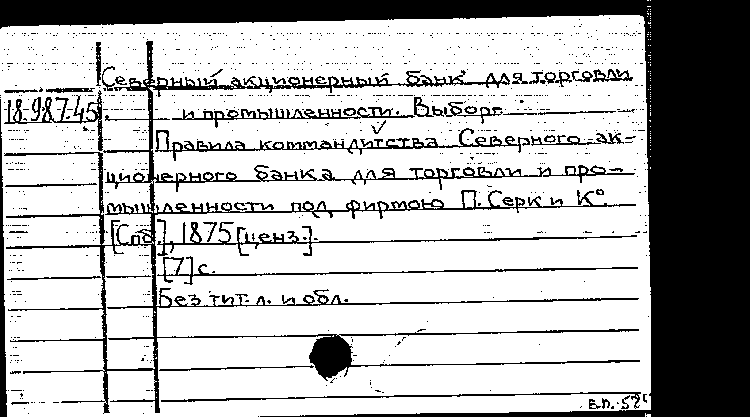 Северный акционерный банк для торговли
18.987.45. и промышленности. Выборг.
Правила коммандитства Северного ак-
ционерного банка для торговли и про-
мышленности под фирмою П. Серк и К°.
[Спб.], 1875 [ценз.].
[7] с.
Без тит. л. и обл.